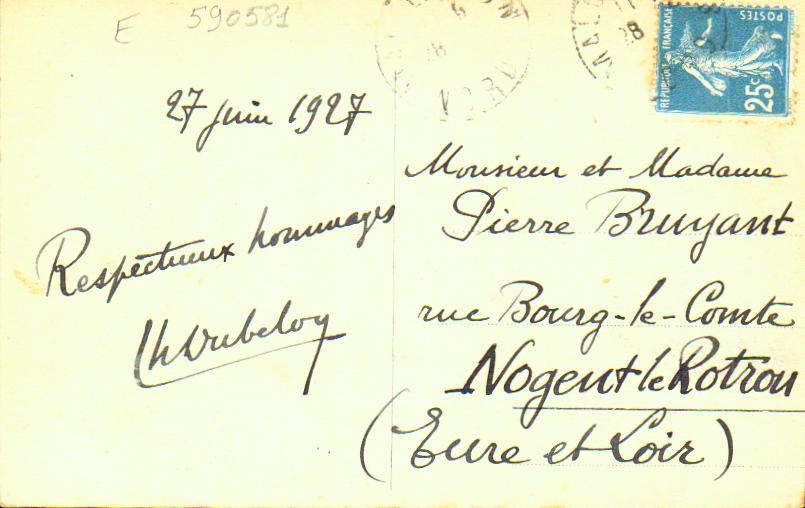 E 590581
27 juin 1927
Respectueux hommages
Monsieur et Madame
Pierre Bruyant
rue Bourg-le-Comte
Nogent le Rotrou
(Eure et Loir)
REPUBLIQUE FRANÇAISE
POSTES
25c
28